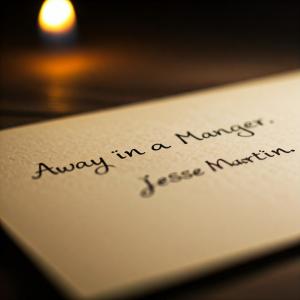 Away in a Manger.
Jesse Martin.